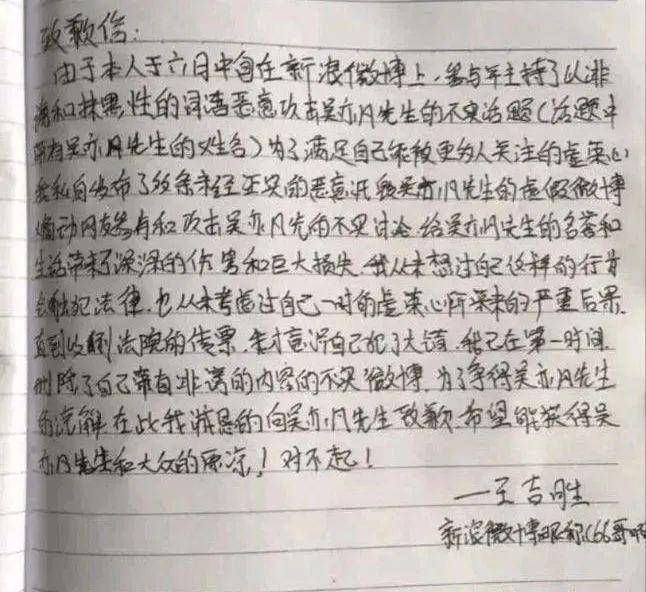 致歉信:
由于本人于六月中旬在新浪微博上,参与并主持了以诽
谤和抹黑性的词语恶意攻击吴亦凡先生的不实话题(话题中
带有吴亦凡先生的姓名)为了满足自己能被更多人关注的虚荣心
我私自发布了多条未经证实的恶意诋毁吴亦凡先生的虚假微博
煽动网友参与和攻击吴亦凡先生的不实讨论.给吴亦凡先生的名誉和
生活带来了深深的伤害和巨大损失.我从未想过自己这样的行为
会触犯法律.也从未考虑过自己一时的虚荣心所带来的严重后果
直到收到法院的传票,我才意识自己犯了大错.我已在第一时间
删除了自己带有诽谤的内容的不实微博.为了争得吴亦凡先生
的谅解在此我诚恳的向吴亦凡先生致歉.希望能获得吴
亦凡先生和大众的原凉!对不起!
——王吉胜
新浪微博昵称(66哥啊